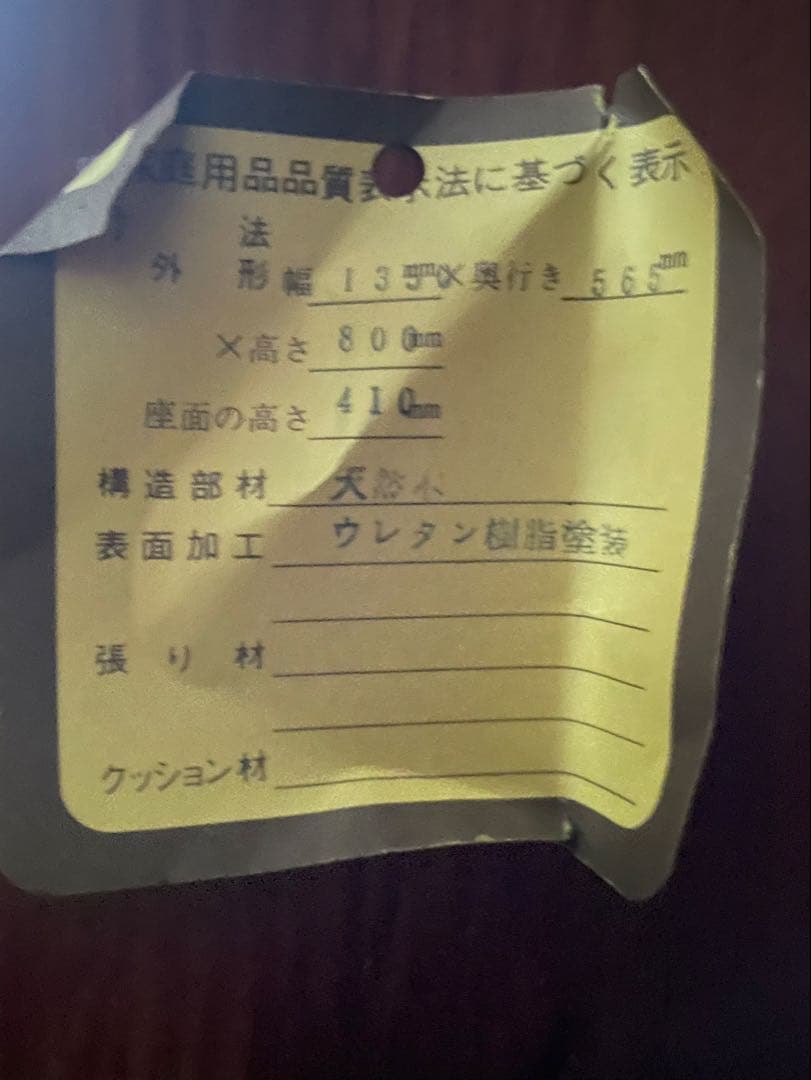 庭用品品質表示法に基づく表示
寸 法
外 形 幅 1350mm×奥行き 565mm
×高さ 800mm
座面の高さ 410mm
構造部材 天然木
表面加工 ウレタン樹脂塗装
張り材
クッション材